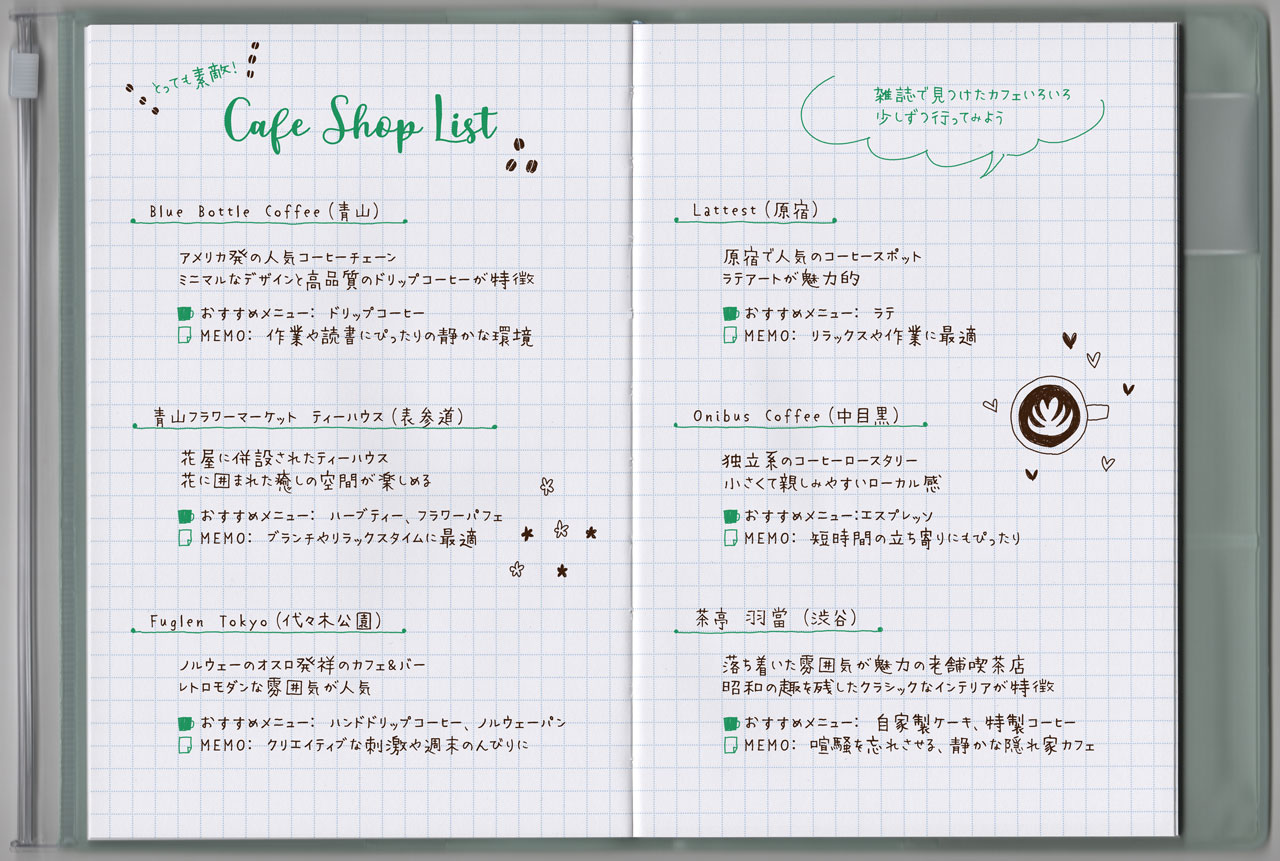 とっても素敵!
Cafe Shop List
Blue Bottle Coffee(青山)
アメリカ発の人気コーヒーチェーン
ミニマルなデザインと高品質のドリップコーヒーが特徴
おすすめメニュー: ドリップコーヒー
MEMO: 作業や読書にぴったりの静かな環境
青山フラワーマーケット ティーハウス(表参道)
花屋に併設されたティーハウス
花に囲まれた癒しの空間が楽しめる
おすすめメニュー: ハーブティー、フラワーパフェ
MEMO: ブランチやリラックスタイムに最適
Fuglen Tokyo(代々木公園)
ノルウェーのオスロ発祥のカフェ&バー
レトロモダンな雰囲気が人気
おすすめメニュー: ハンドドリップコーヒー、ノルウェーパン
MEMO: クリエイティブな刺激や週末のんびりに
雑誌で見つけたカフェいろいろ
少しずつ行ってみよう
Lattest(原宿)
原宿で人気のコーヒースポット
ラテアートが魅力的
おすすめメニュー: ラテ
MEMO: リラックスや作業に最適
Onibus Coffee(中目黒)
独立系のコーヒーロースタリー
小さくて親しみやすいローカル感
おすすめメニュー:エスプレッソ
MEMO: 短時間の立ち寄りにもぴったり
茶亭 羽當 (渋谷)
落ち着いた雰囲気が魅力の老舗喫茶店
昭和の趣を残したクラシックなインテリアが特徴
おすすめメニュー: 自家製ケーキ、特製コーヒー
MEMO: 喧騒を忘れさせる、静かな隠れ家カフェ